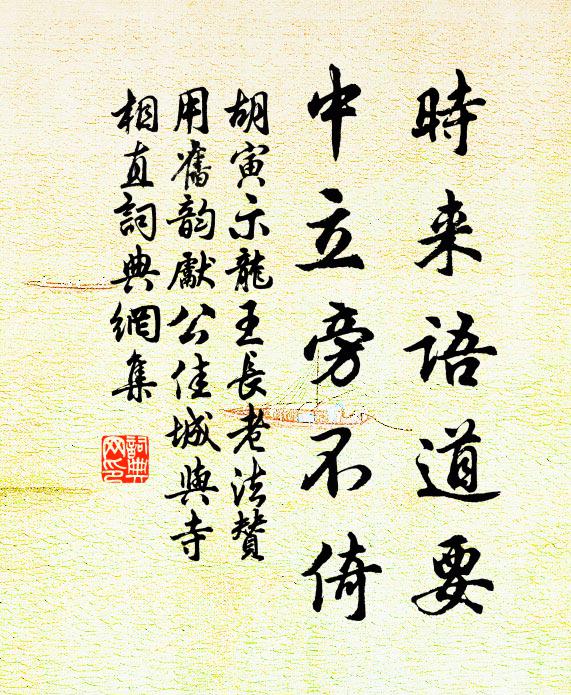 時来語道要
中立旁不倚
胡寅示龍王長老法贊
用舊韵獻公佳城與寺
相直詞典網集
詞典
网印